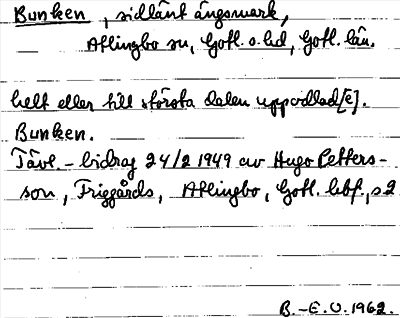 Bunken, sidlänt ängsmark,
Atlingbo sn, Gotl. s. hd, Gotl. län.
helt eller till största delen uppodlad[e].
Bunken.
Tävl.-bidrag 24/2 1949 av Hugo Petters-
son, Friggårds, Atlingbo, Gotl. hbf, s 2
B.-E.O. 1962.